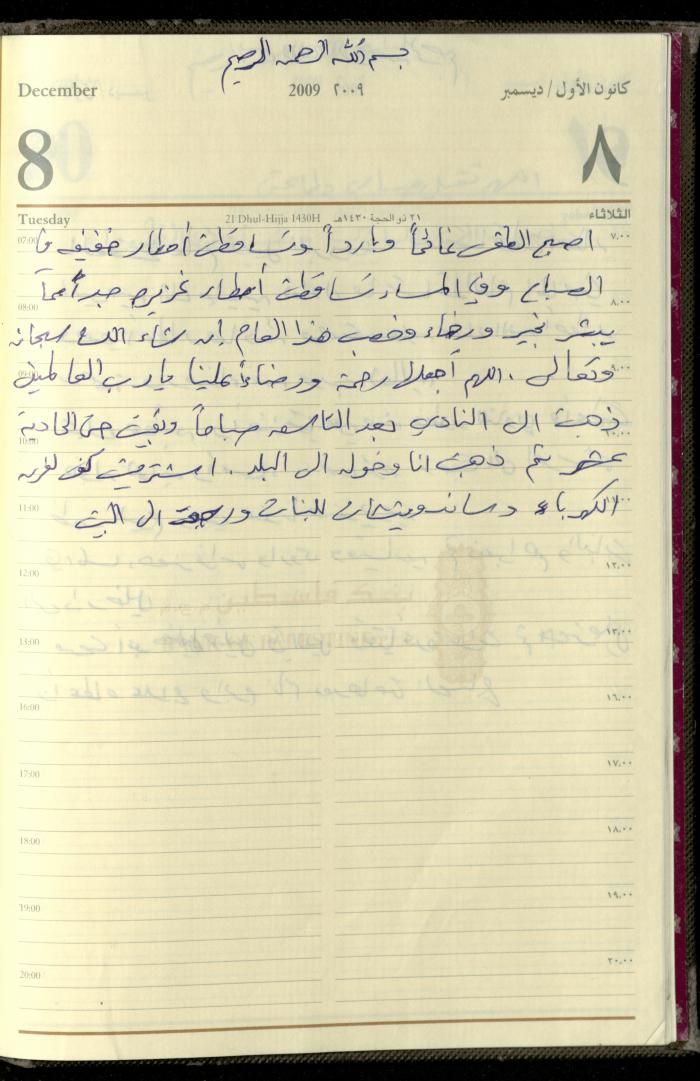 بسم الله الرحمن الرحيم
December 2009 ٢٠٠٩ كانون الأول / ديسمبر
8 ٨
Tuesday 21 Dhul-Hijja 1430H ٢١ ذو الحجة ١٤٣٠هـ الثلاثاء
07:00 ٧,٠٠
اصبح الطقس غائماً وبارداً وتساقطت أمطار خفيفه في
الصباح وفي المساء تساقطت أمطار غزيره جداً مما
08:00 ٨,٠٠
يبشر بخير ورخاء وخصب هذا العام إن شاء الله سبحانه
وتعالى . اللهم أجعلها رحمة ورضاءً علينا يا رب العالمين
09:00 ٩,٠٠
ذهبت الى النادي بعد التاسعه صباحاً وبقيت حتى الحادية
10:00 ١٠,٠٠
عشر ثم ذهبت انا وخوله الى البلد . اشتريت لغرفه
الكهرباء وساندويتشات للبنات ورجعت الى البيت
11:00 ١١,٠٠
12:00 ١٢,٠٠
13:00 ١٣,٠٠
16:00 ١٦,٠٠
17:00 ١٧,٠٠
18:00 ١٨,٠٠
19:00 ١٩,٠٠
20:00 ٢٠,٠٠